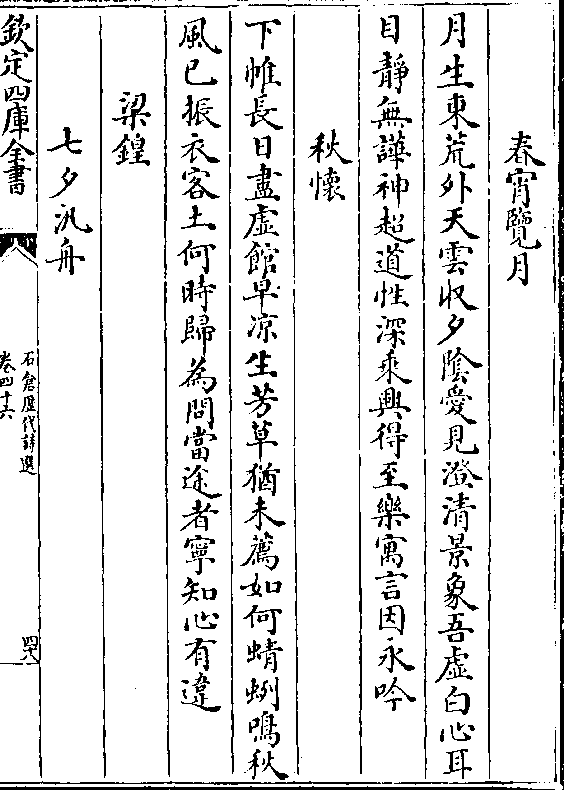 春宵覽月
月生東荒外天雲收夕陰愛見澄清景象吾虛白心耳
目靜無譁神超道性深乘興得至樂寓言因永吟
秋懷
下帷長日盡虛館早凉生芳草猶未薦如何蜻蛚鳴秋
風已振衣客土何時歸為問當途者寧知心有違
梁鍠
七夕汎舟
欽定四庫全書
石倉歷代詩選
卷四十六
四十八